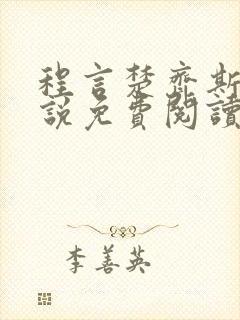 程言楚齊斯
說免費閱讀
李善英